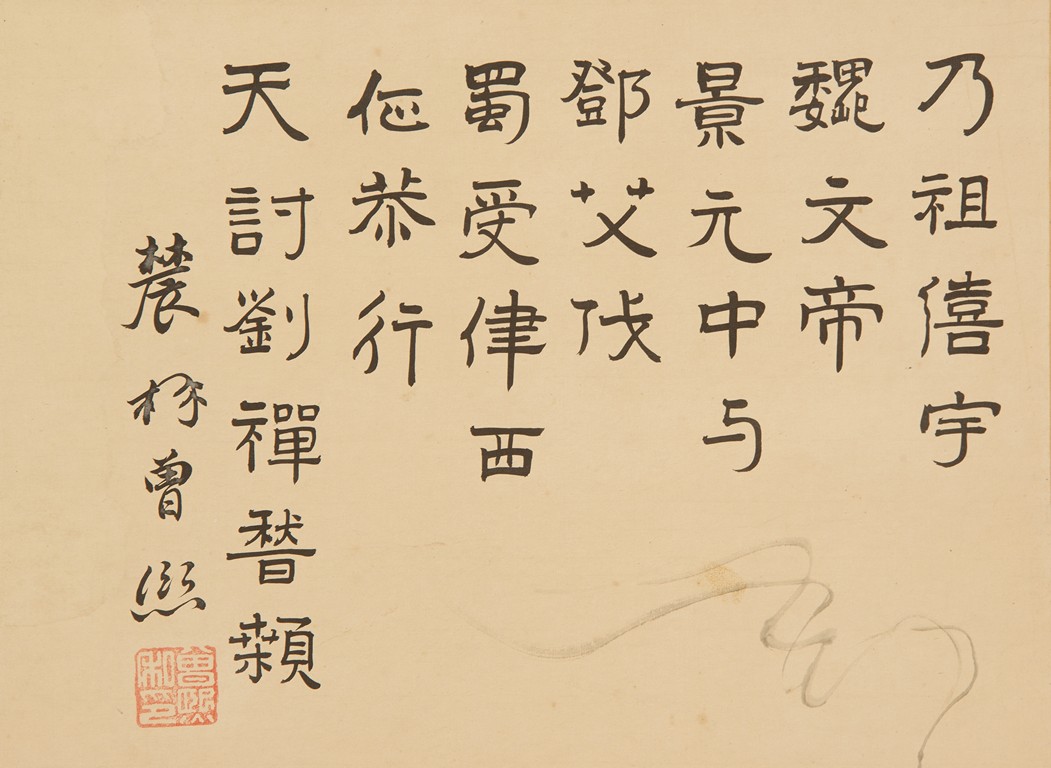 乃祖僖宇
魏文帝
景元中与
鄧艾伐
蜀受律西
佂恭行
天討劉禪稽顙
農髯曾熙
曾熙私印